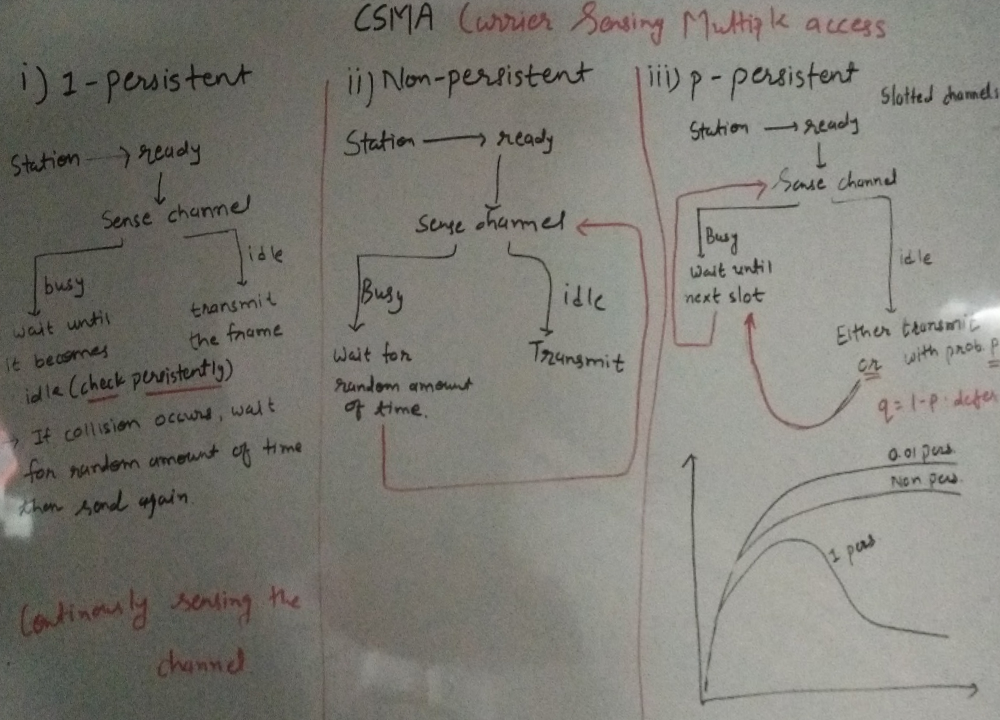 CSMA Carrier Sensing Multiple access
i) 1-persistent
Station → ready
Sense channel
busy
idle
wait until
it becomes
idle (check persistently)
transmit
the frame
→ If collision occurs, wait
for random amount of time
then send again.
Continously sensing the
channel
ii) Non-persistent
Station → ready
Sense channel
Busy
idle
Wait for
random amount
of time.
Transmit
iii) p-persistent
Slotted channels
Station → ready
Sense channel
Busy
idle
Wait until
next slot
Either transmit
or with prob. p
q = 1-p. defer
0.01 pers.
Non pers.
1 pers